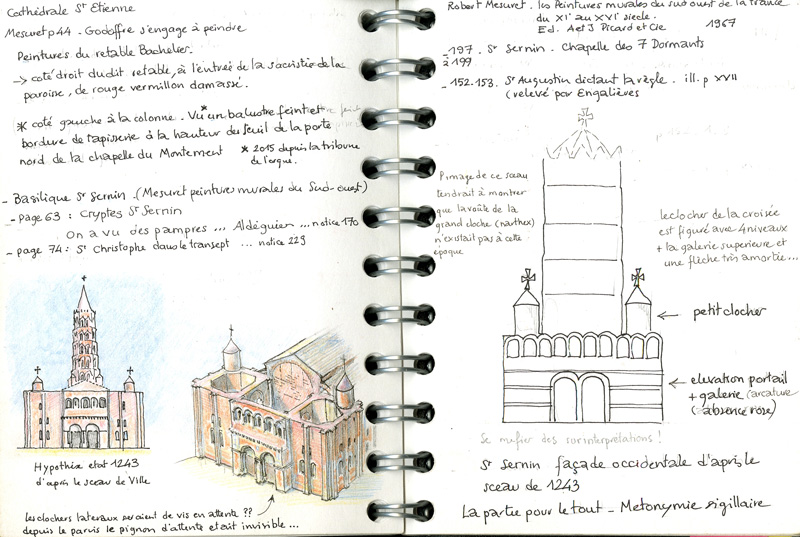 Cathédrale St Etienne
Mesuret p 44. Godoffre s'engage à peindre
Peintures du retable Bachelier.
→ coté droit du dit retable, à l'entrée de la sacristie de la
paroisse, de rouge vermillon damassé.
* coté gauche à la colonne. Vu* un balustre feint et
bordure de tapisserie à la hauteur du seuil de la porte
nord de la chapelle du Montement
* 2015 depuis la tribune
de l'orgue.
- Basilique St Sernin (Mesuret peintures murales du Sud-ouest)
- page 63 : Cryptes St Sernin
On a vu des pampres ... Aldéguier ... notice 170
- page 74 : St Christophe dans le transept ... notice 229
Hypothèse etat 1243
d'après le sceau de Ville
les clochers lateraux seraient de vis en attente ??
depuis le parvis le pignon d'attente etait invisible ...
Robert Mesuret. les Peintures murales du sud ouest de la France
du XI° au XVI° siecle.
Ed. A et J Picard et Cie 1967
- 197. St Sernin. Chapelle des 7 Dormants
à 199
- 152.153. St Augustin dictant la règle. ill. p XVII
(relevé par Engalières)
l'image de ce sceau
tendrait à montrer
que la voûte de la
grand cloche (narthex)
n'existait pas à cette
époque
le clocher de la croisée
est figuré avec 4 niveaux
+ la galerie superieure et
une flèche très amortie...
← petit clocher
← elevation portail
+ galerie (arcature)
(absence rose)
Se méfier des surinterprétations !
St Sernin façade occidentale d'après le
sceau de 1243
La partie pour le tout - Metonymie sigillaire